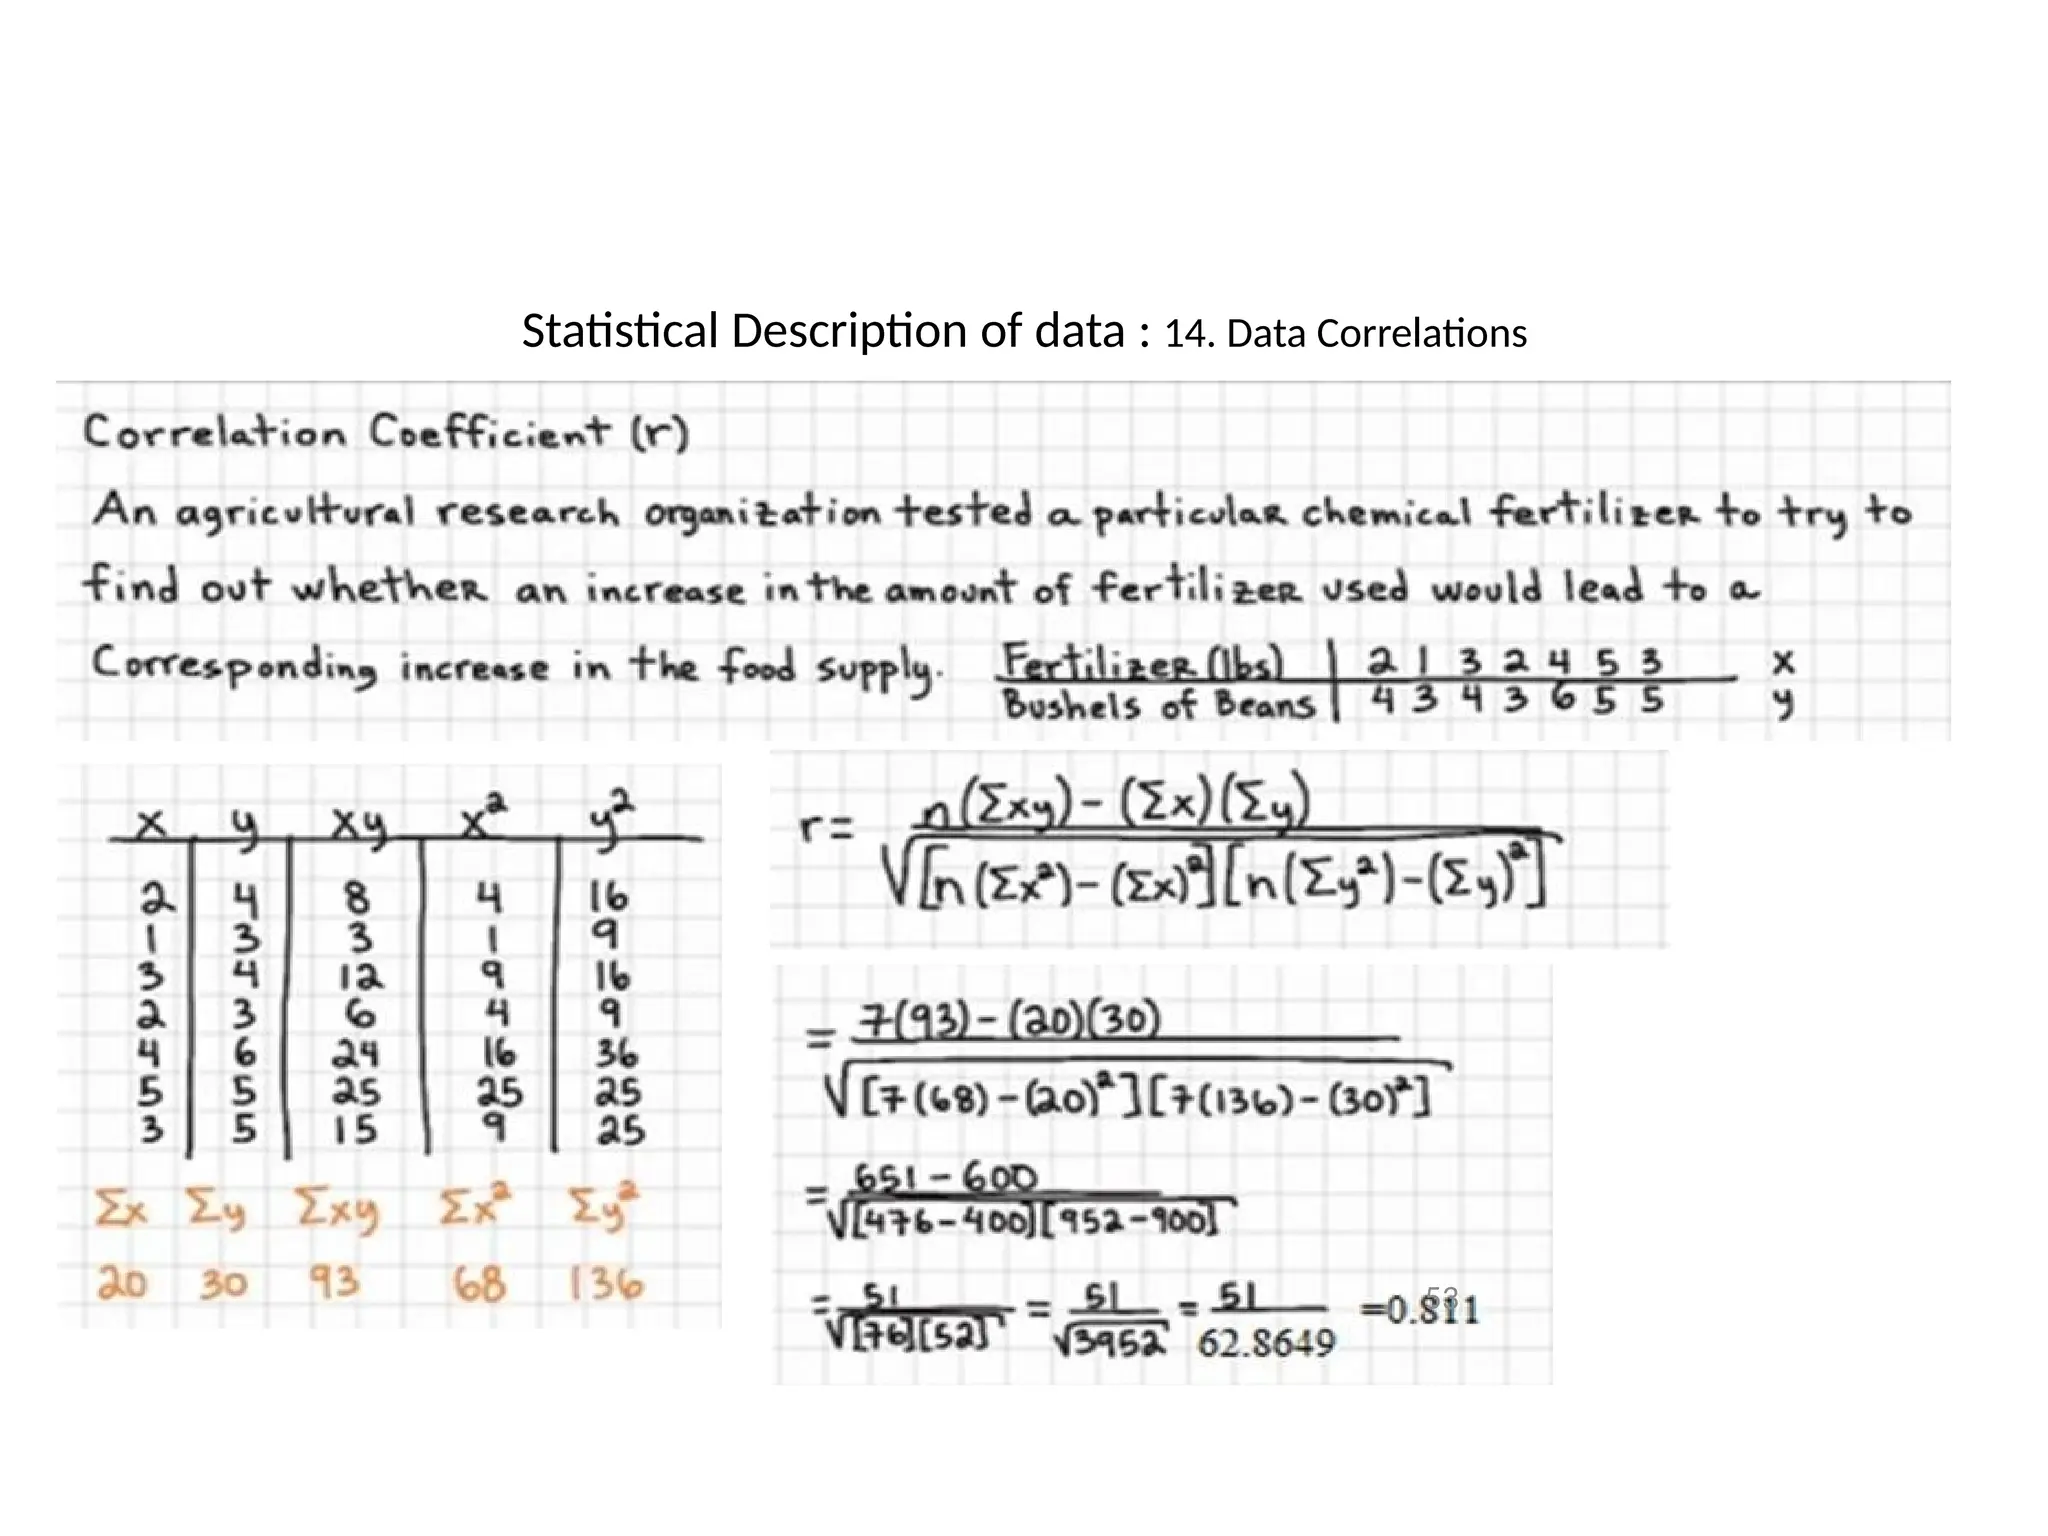 Statistical Description of data : 14. Data Correlations
Correlation Coefficient (r)
An agricultural research organization tested a particular chemical fertilizer to try to
find out whether an increase in the amount of fertilizer used would lead to a
Corresponding increase in the food supply.
Fertilizer (lbs) | 2 1 3 2 4 5 3 x
Bushels of Beans | 4 3 4 3 6 5 5 y
x y xy x² y²
2 4 8 4 16
1 3 3 1 9
3 4 12 9 16
2 3 6 4 9
4 6 24 16 36
5 5 25 25 25
3 5 15 9 25
Σx Σy Σxy Σx² Σy²
20 30 93 68 136
r = n(Σxy) - (Σx)(Σy)
√[n(Σx²) - (Σx)²][n(Σy²) - (Σy)²]
= 7(93) - (20)(30)
√[7(68) - (20)²][7(136) - (30)²]
= 651 - 600
√[476 - 400][952 - 900]
= 51 = 51 = 51 =0.811
√[76][52] √3952 62.8649
53